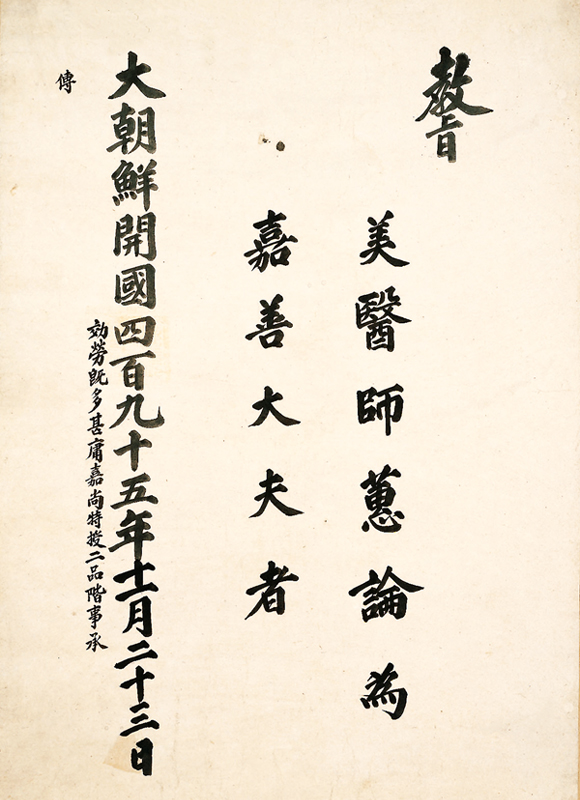 敎旨
美醫師蕙論為
嘉善大夫者
大朝鮮開國四百九十五年十一月二十三日
効勞既多甚庸嘉尚特授二品階事承
傳